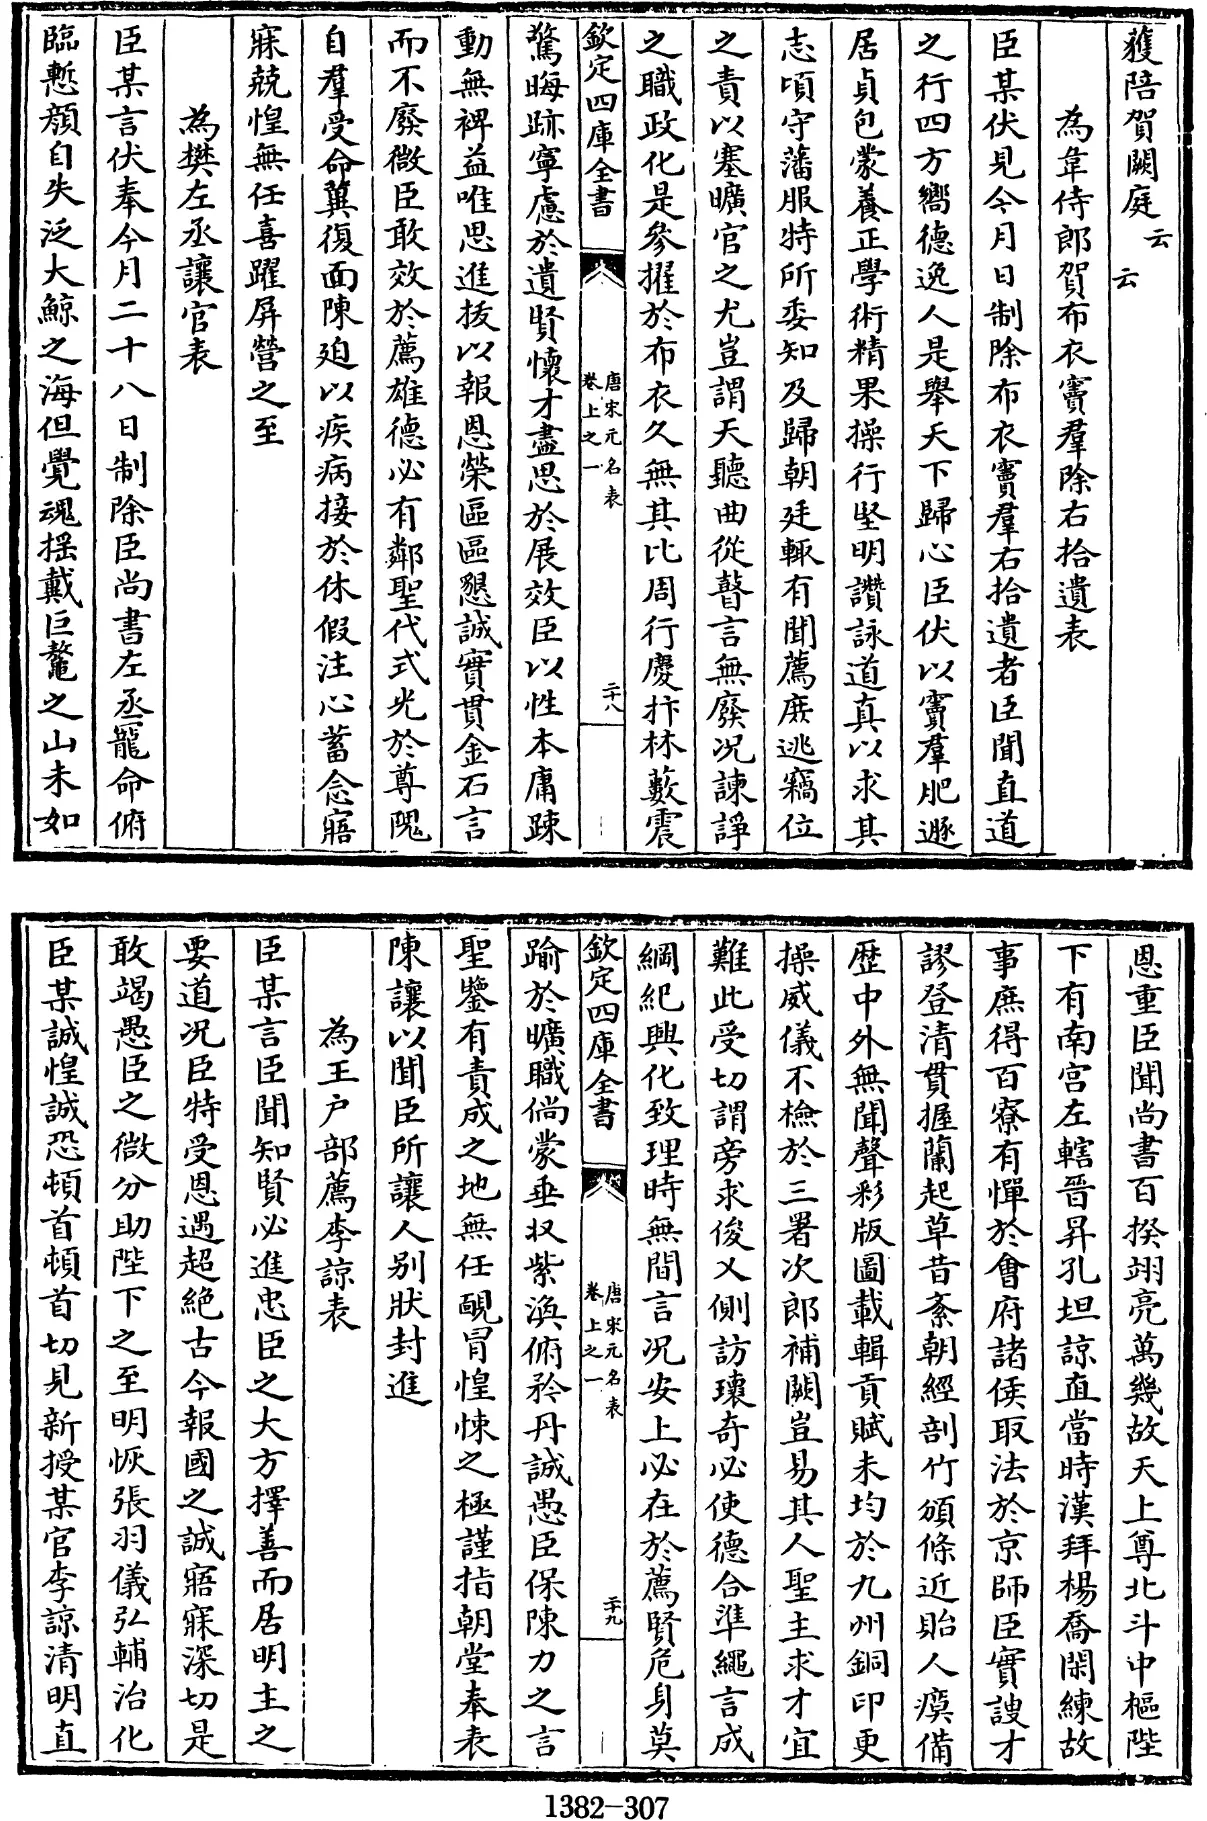 獲陪賀闕庭云云
為韋侍郎賀布衣竇羣除右拾遺表
臣某伏見今月日制除布衣竇羣右拾遺者臣聞直道
之行四方嚮德逸人是舉天下歸心臣伏以竇羣肥遯
居貞包蒙養正學術精果操行堅明讚詠道真以求其
志頃守藩服特所委知及歸朝廷輙有聞薦庶逃竊位
之責以塞曠官之尤豈謂天聽曲從瞽言無廢况諫諍
之職政化是參擢於布衣久無其比周行慶抃林藪震
欽定四庫全書
唐宋元名表
卷上之一
二十八
驚晦跡寧慮於遺賢懷才盡思於展效臣以性本庸踈
動無裨益唯思進拔以報恩榮區區懇誠實貫金石言
而不廢微臣敢效於薦雄德必有鄰聖代式光於尊隗
自羣受命冀復面陳廹以疾病接於休假注心蓄念寤
寐兢惶無任喜躍屏營之至
為樊左丞讓官表
臣某言伏奉今月二十八日制除臣尚書左丞寵命俯
臨慙顔自失泛大鯨之海但覺魂揺戴巨鼇之山未如
恩重臣聞尚書百揆翊亮萬幾故天上尊北斗中樞陛
下有南宫左轄晉昇孔坦諒直當時漢拜楊喬閑練故
事庶得百寮有憚於會府諸侯取法於京師臣實謏才
謬登清貫握蘭起草昔紊朝經剖竹頒條近貽人瘼備
歴中外無聞聲彩版圖載輯貢賦未均於九州銅印更
操威儀不檢於三署次郎補闕豈易其人聖主求才宜
難此受切謂旁求俊乂側訪瓌奇必使德合準繩言成
綱紀興化致理時無間言况安上必在於薦賢危身莫
欽定四庫全書
唐宋元名表
卷上之一
二十九
踰於曠職倘蒙垂収紫渙俯矜丹誠愚臣保陳力之言
聖鑒有責成之地無任靦冒惶悚之極謹指朝堂奉表
陳讓以聞臣所讓人别狀封進
為王户部薦李諒表
臣某言臣聞知賢必進忠臣之大方擇善而居明主之
要道况臣特受恩遇超絶古今報國之誠寤寐深切是
敢竭愚臣之微分助陛下之至明恢張羽儀弘輔治化
臣某誠惶誠恐頓首頓首切見新授某官李諒清明直
1382-307